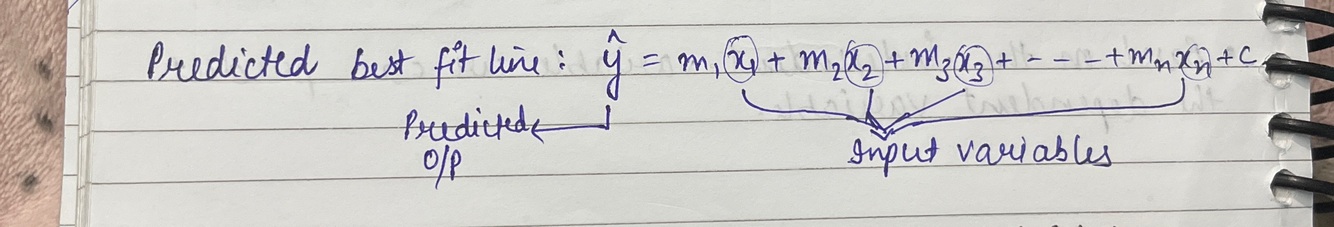 Predicted best fit line : ŷ = m₁x₁ + m₂x₂ + m₃x₃ + - - - + mₙxₙ + c
Predicted
O/P
Input variables